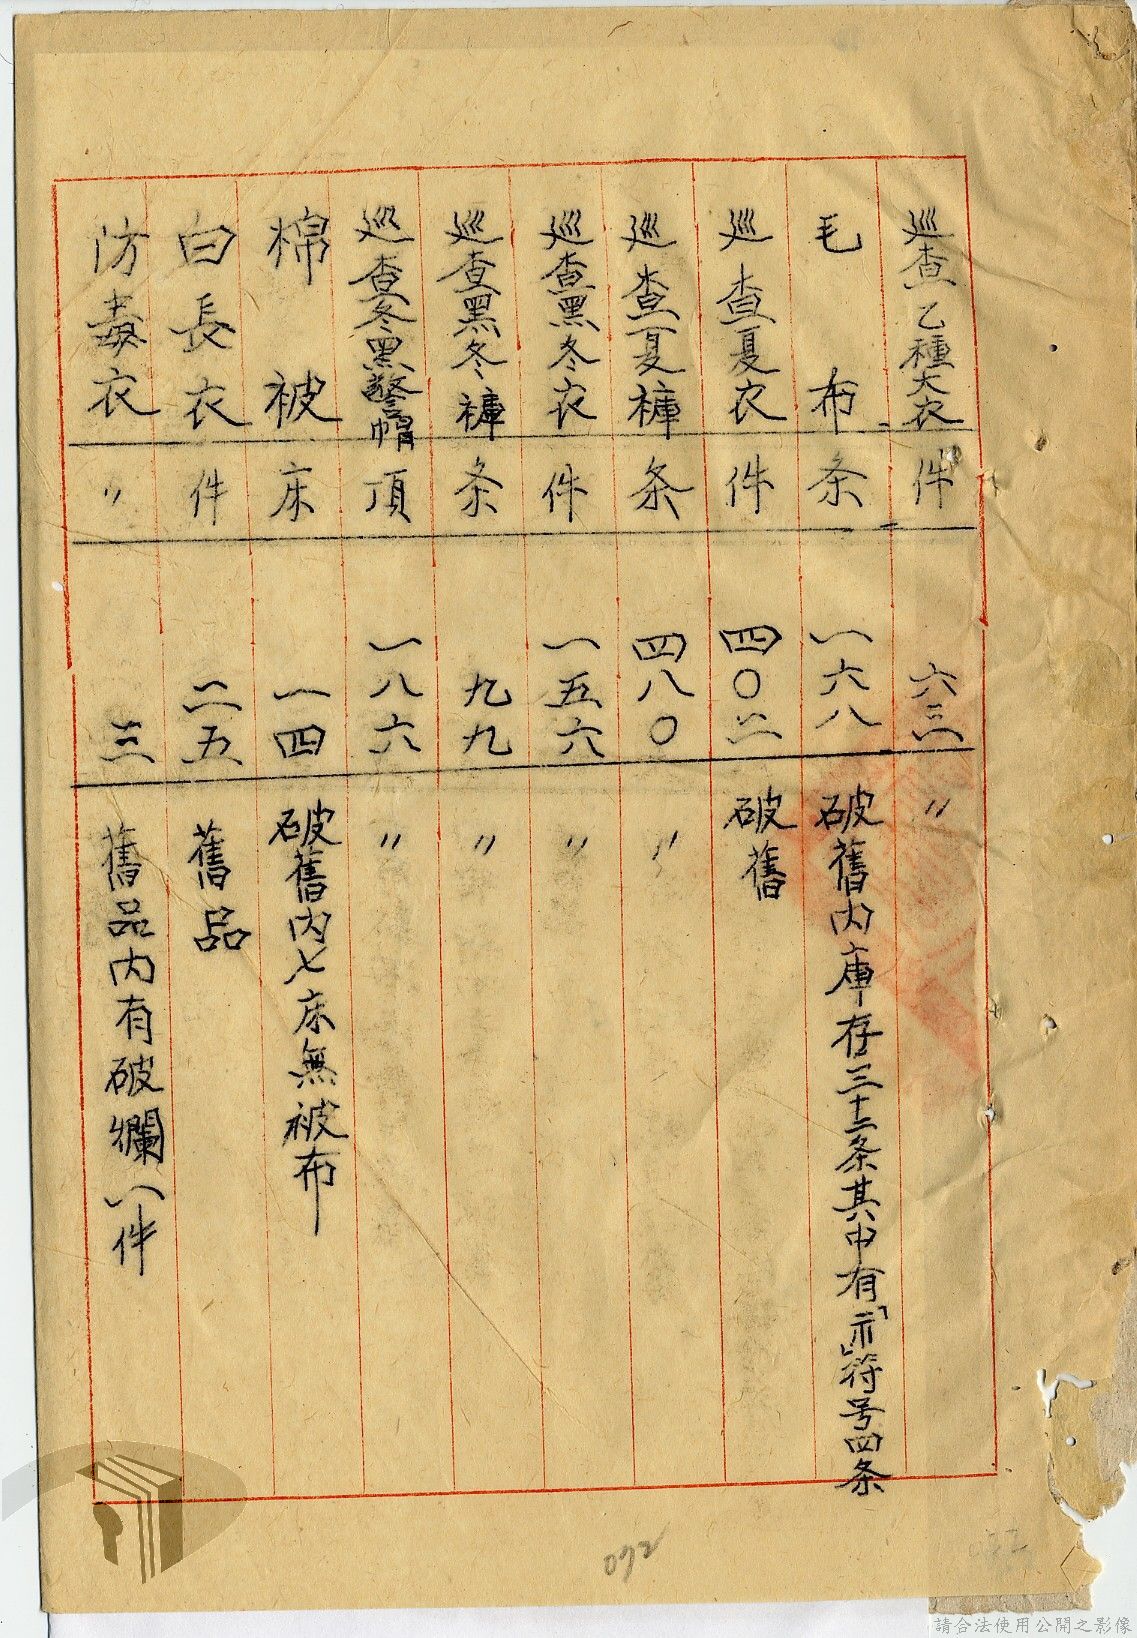 巡查乙種大衣 件 六三 〃
毛布 条 一六八 破舊內庫存三十二条其中有「示」符号四条
巡查夏衣 件 四〇二 破舊
巡查夏褲 条 四八〇 〃
巡查黑冬衣 件 一五六 〃
巡查黑冬褲 条 九九 〃
巡查冬黑警帽 頂 一八六 〃
棉被 床 一四 破舊內七床無被布
白長衣 件 二五 舊品
防毒衣 〃 三 舊品內有破爛一件
072
022
請合法使用公開之影像